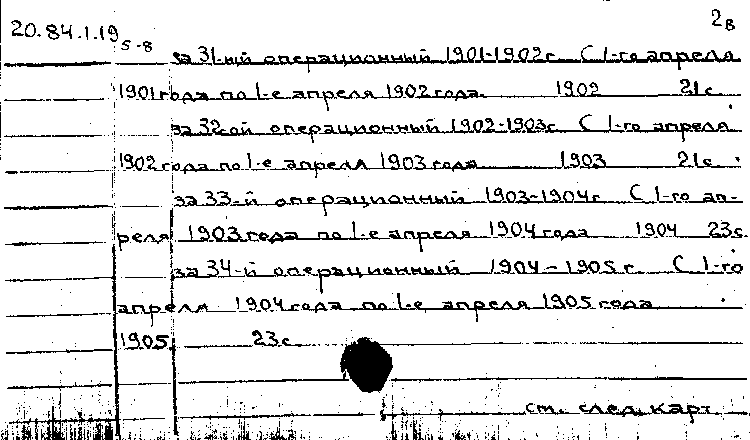 20.84.1.19 5-8
2в
за 31-ый операционный 1901-1902г С 1-го апреля
1901 года по 1-е апреля 1902 года. 1902 21с.
за 32-ой операционный 1902-1903г С 1-го апреля
1902 года по 1-е апреля 1903 года 1903 21с.
за 33-й операционный 1903-1904г С 1-го ап-
реля 1903 года по 1-е апреля 1904 года 1904 23с.
за 34-й операционный 1904-1905г. С 1-го
апреля 1904 года по 1-е апреля 1905 года
1905. 23с.
см. след. карт.